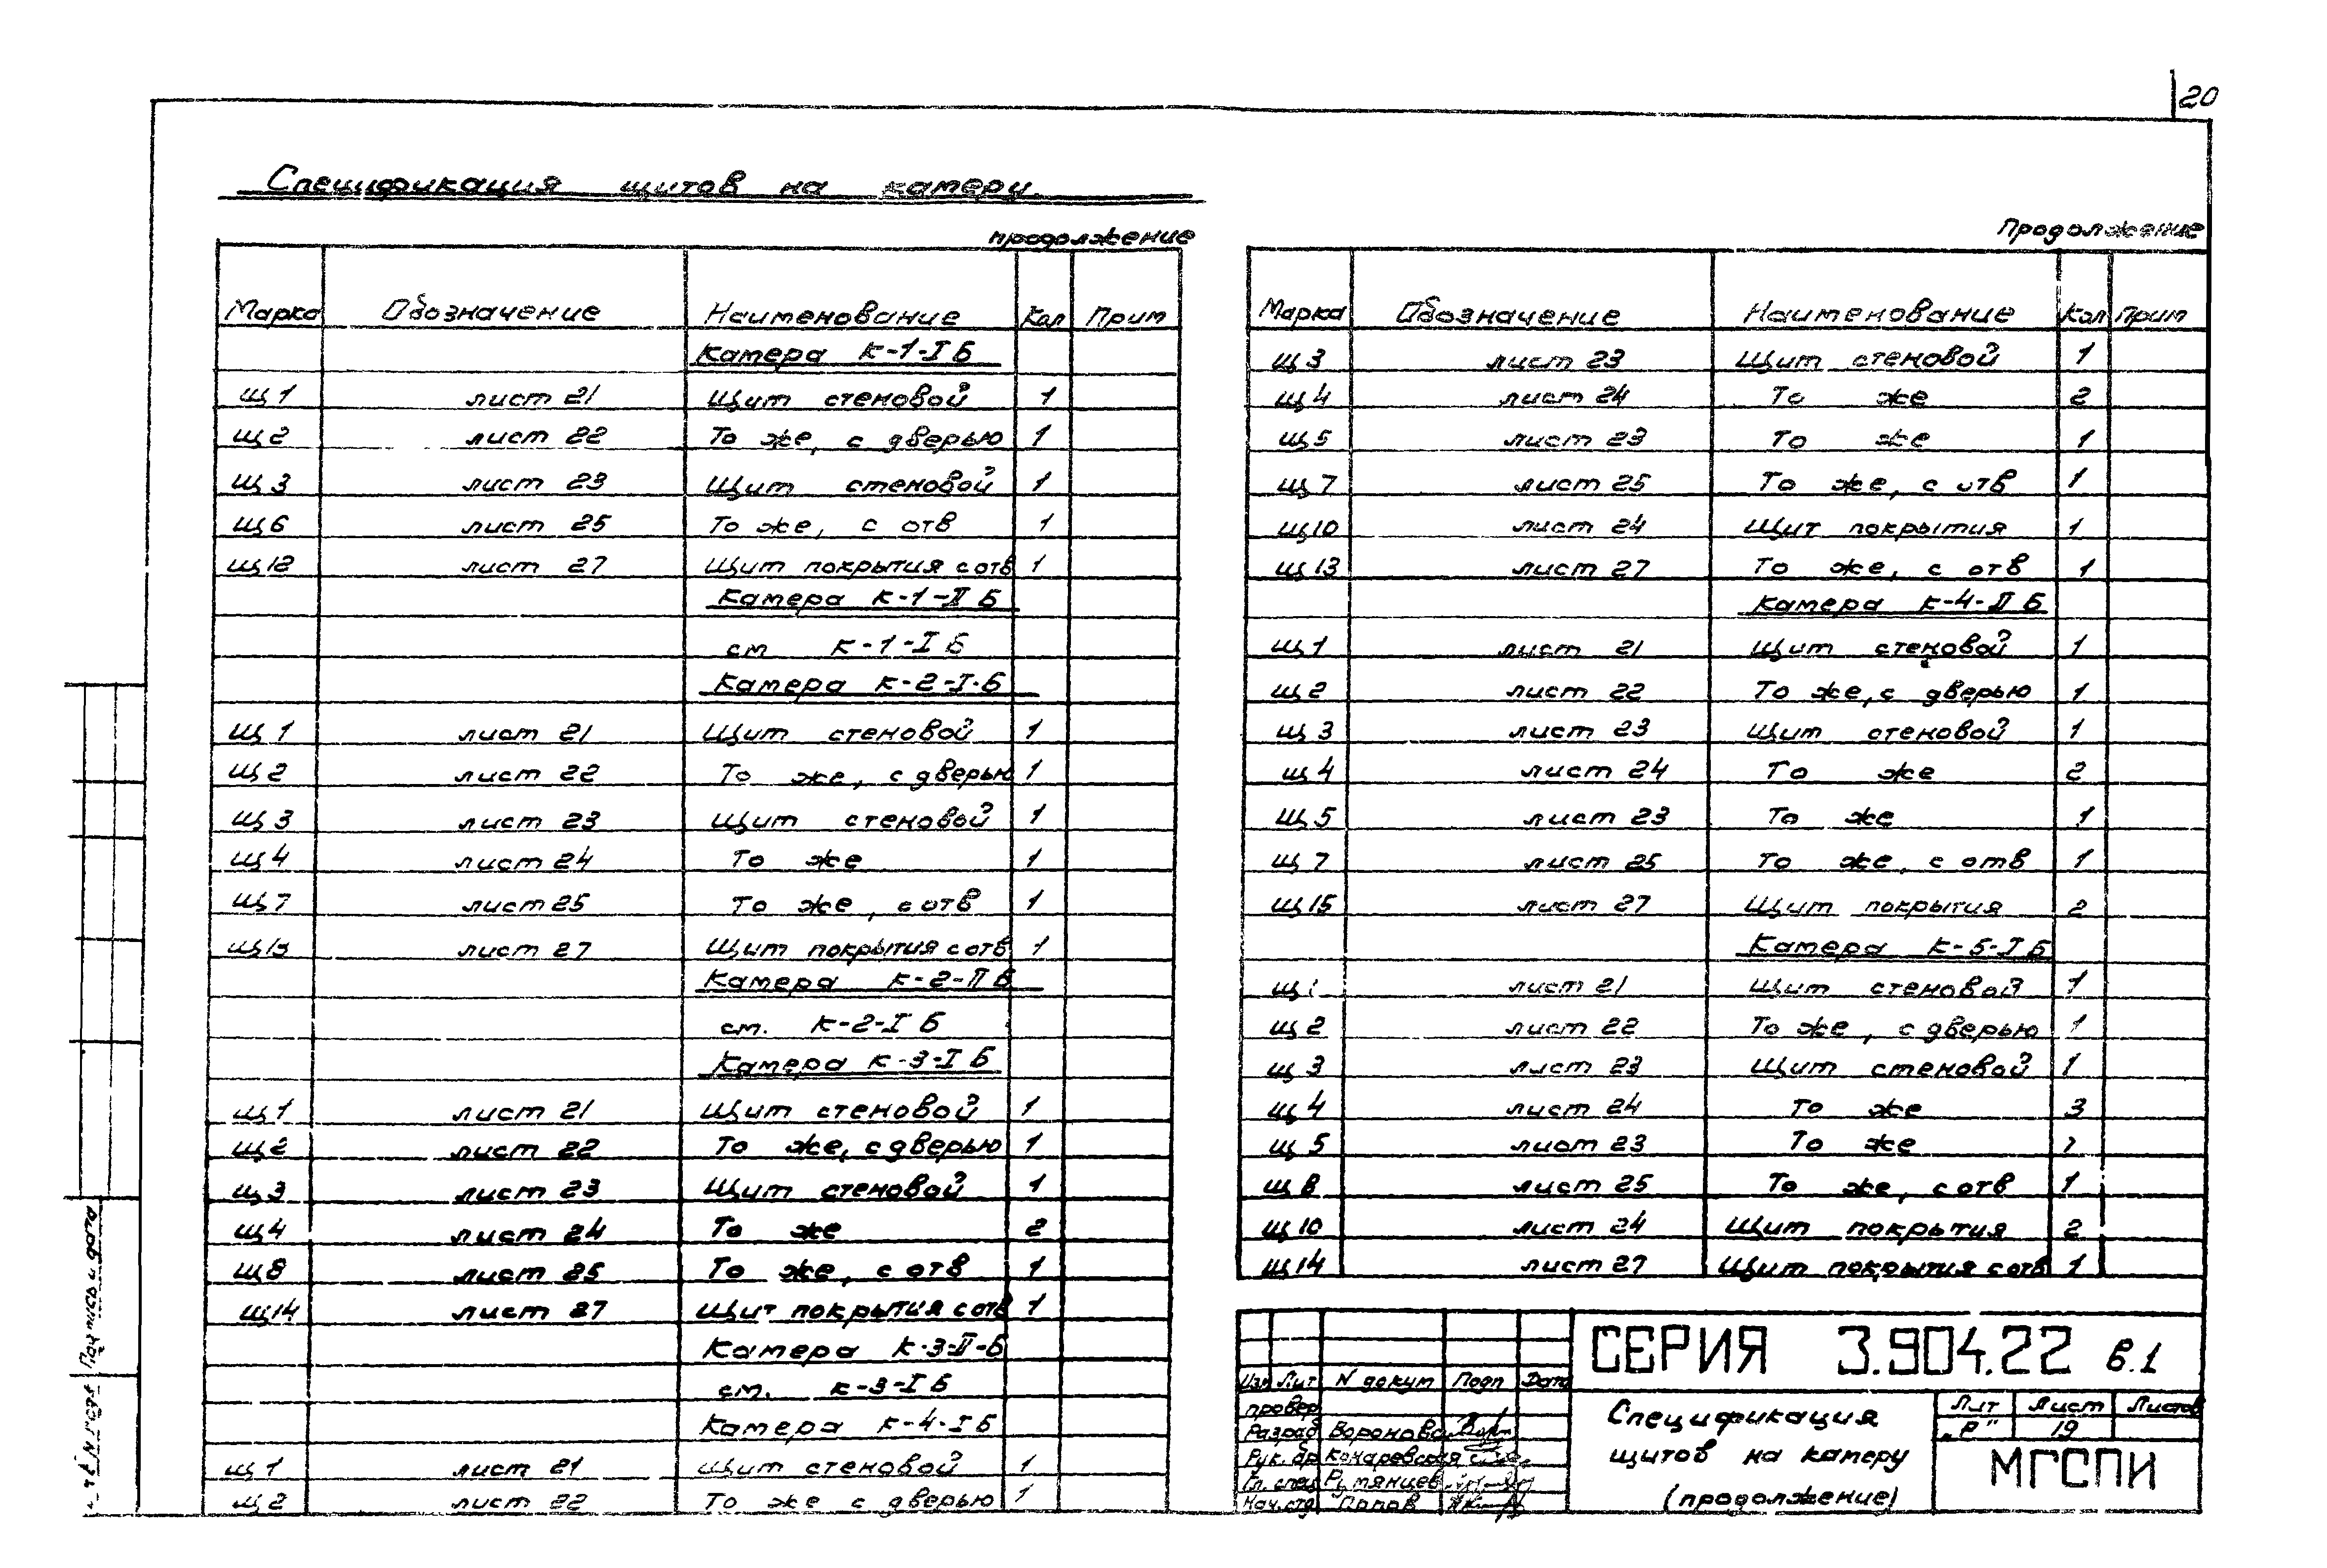 20
Спецификация щитов на камеру.
продолжение
Марка Обозначение Наименование Кол Прим
Камера К-1-I Б
Щ1 лист 21 Щит стеновой 1
Щ2 лист 22 То же, с дверью 1
Щ3 лист 23 Щит стеновой 1
Щ6 лист 25 То же, с отв 1
Щ12 лист 27 Щит покрытия с отв 1
Камера К-1-II Б
см К-1-I Б
Камера К-2-I-Б
Щ1 лист 21 Щит стеновой 1
Щ2 лист 22 То же, с дверью 1
Щ3 лист 23 Щит стеновой 1
Щ4 лист 24 То же 1
Щ7 лист 25 То же, с отв 1
Щ13 лист 27 Щит покрытия с отв 1
Камера К-2-II Б
см. К-2-I Б
Камера К-3-I Б
Щ1 лист 21 Щит стеновой 1
Щ2 лист 22 То же, с дверью 1
Щ3 лист 23 Щит стеновой 1
Щ4 лист 24 То же 2
Щ8 лист 25 То же, с отв 1
Щ14 лист 27 Щит покрытия с отв 1
Камера К-3-II-Б
см. К-3-I Б
Камера К-4-I Б
Щ1 лист 21 Щит стеновой 1
Щ2 лист 22 То же с дверью 1
Продолжение
Марка Обозначение Наименование Кол Прим
Щ3 лист 23 Щит стеновой 1
Щ4 лист 24 То же 2
Щ5 лист 23 То же 1
Щ7 лист 25 То же, с отв 1
Щ10 лист 24 Щит покрытия 1
Щ13 лист 27 То же, с отв 1
Камера К-4-II Б
Щ1 лист 21 Щит стеновой 1
Щ2 лист 22 То же, с дверью 1
Щ3 лист 23 Щит стеновой 1
Щ4 лист 24 То же 2
Щ5 лист 23 То же 1
Щ7 лист 25 То же, с отв 1
Щ15 лист 27 Щит покрытия 2
Камера К-5-I Б
Щ1 лист 21 Щит стеновой 1
Щ2 лист 22 То же, с дверью 1
Щ3 лист 23 Щит стеновой 1
Щ4 лист 24 То же 3
Щ5 лист 23 То же 1
Щ8 лист 25 То же, с отв 1
Щ10 лист 24 Щит покрытия 2
Щ14 лист 27 Щит покрытия с отв 1
СЕРИЯ 3.904.22 в.1
Изм Лит N докум Подп Дата
провер
Разраб Воронова
Рук. бр Комаревская
Гл. спец Румянцев
Нач. отд Попов
Спецификация
щитов на камеру
(продолжение)
Лит Лист Листов
„Р" 19
МГСПИ
Подпись и дата